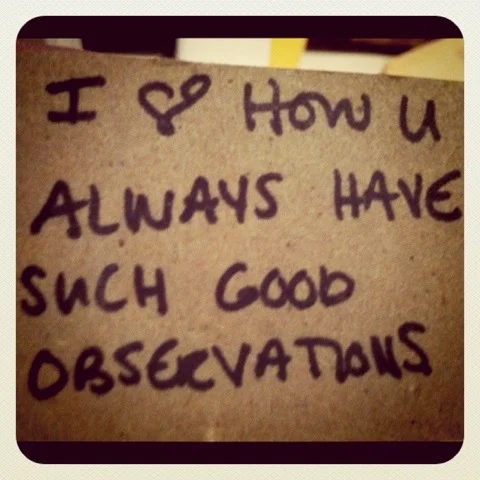 I ♡ HOW U
ALWAYS HAVE
SUCH GOOD
OBSERVATIONS